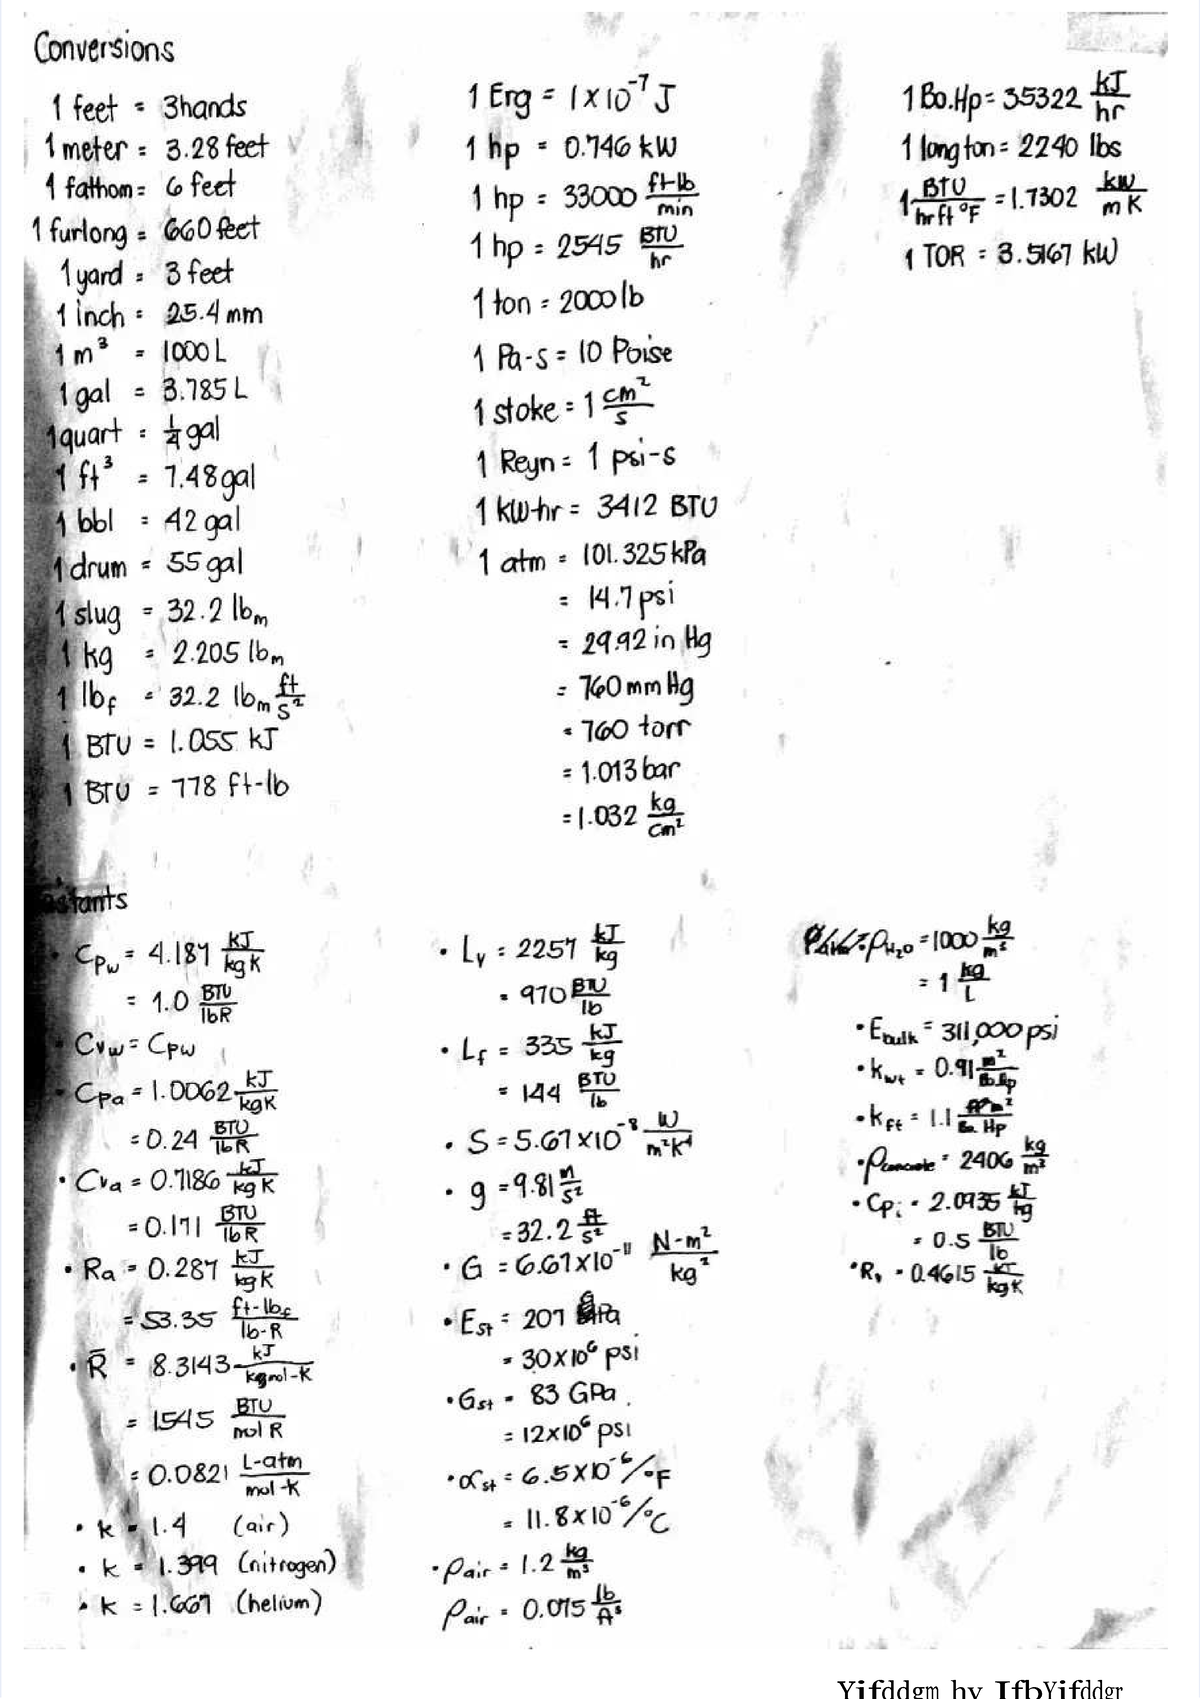 Conversions
1 feet = 3hands
1 meter = 3.28 feet
1 fathom = 6 feet
1 furlong = 660 feet
1 yard = 3 feet
1 inch = 25.4 mm
1 m³ = 1000 L
1 gal = 3.785 L
1 quart = 1/4 gal
1 ft³ = 7.48 gal
1 bbl = 42 gal
1 drum = 55 gal
1 slug = 32.2 lbm
1 kg = 2.205 lbm
1 lbf = 32.2 lbm ft/s²
1 BTU = 1.055 kJ
1 BTU = 778 ft-lb
1 Erg = 1×10⁻⁷ J
1 hp = 0.746 kW
1 hp = 33000 ft-lb/min
1 hp = 2545 BTU/hr
1 ton = 2000 lb
1 Pa-s = 10 Poise
1 stoke = 1 cm²/s
1 Reyn = 1 psi-s
1 kW-hr = 3412 BTU
1 atm = 101.325 kPa
= 14.7 psi
= 29.92 in Hg
= 760 mm Hg
= 760 torr
= 1.013 bar
= 1.032 kg/cm²
1 Bo.Hp = 35322 kJ/hr
1 long ton = 2240 lbs
1 BTU/hr ft °F = 1.7302 kW/m K
1 TOR = 3.5167 kW
stants
• Cpw = 4.187 kJ/kg K
= 1.0 BTU/lb R
• Cvw = Cpw
• Cpa = 1.0062 kJ/kg K
= 0.24 BTU/lb R
• Cva = 0.7186 kJ/kg K
= 0.171 BTU/lb R
• Ra = 0.287 kJ/kg K
= 53.35 ft-lbf/lb-R
• R̄ = 8.3143 kJ/kgmol-K
= 1545 BTU/mol R
= 0.0821 L-atm/mol-K
• k = 1.4 (air)
• k = 1.399 (nitrogen)
• k = 1.667 (helium)
• Lv = 2257 kJ/kg
= 970 BTU/lb
• Lf = 335 kJ/kg
= 144 BTU/lb
• S = 5.67×10⁻⁸ W/m²K⁴
• g = 9.81 m/s²
= 32.2 ft/s²
• G = 6.67×10⁻¹¹ N-m²/kg²
• Est = 207 GPa
= 30×10⁶ psi
• Gst = 83 GPa
= 12×10⁶ psi
• αst = 6.5×10⁻⁶/°F
= 11.8×10⁻⁶/°C
• ρair = 1.2 kg/m³
ρair = 0.075 lb/ft³
ρH₂O = 1000 kg/m³
= 1 kg/L
• Ebulk = 311,000 psi
• kwt = 0.91 m²/Bo.Hp
• kft = 1.1 m²/Bo. Hp
• ρconcrete = 2406 kg/m³
• Cpi = 2.0935 kJ/kg
= 0.5 BTU/lb
• Rv = 0.4615 kJ/kg K